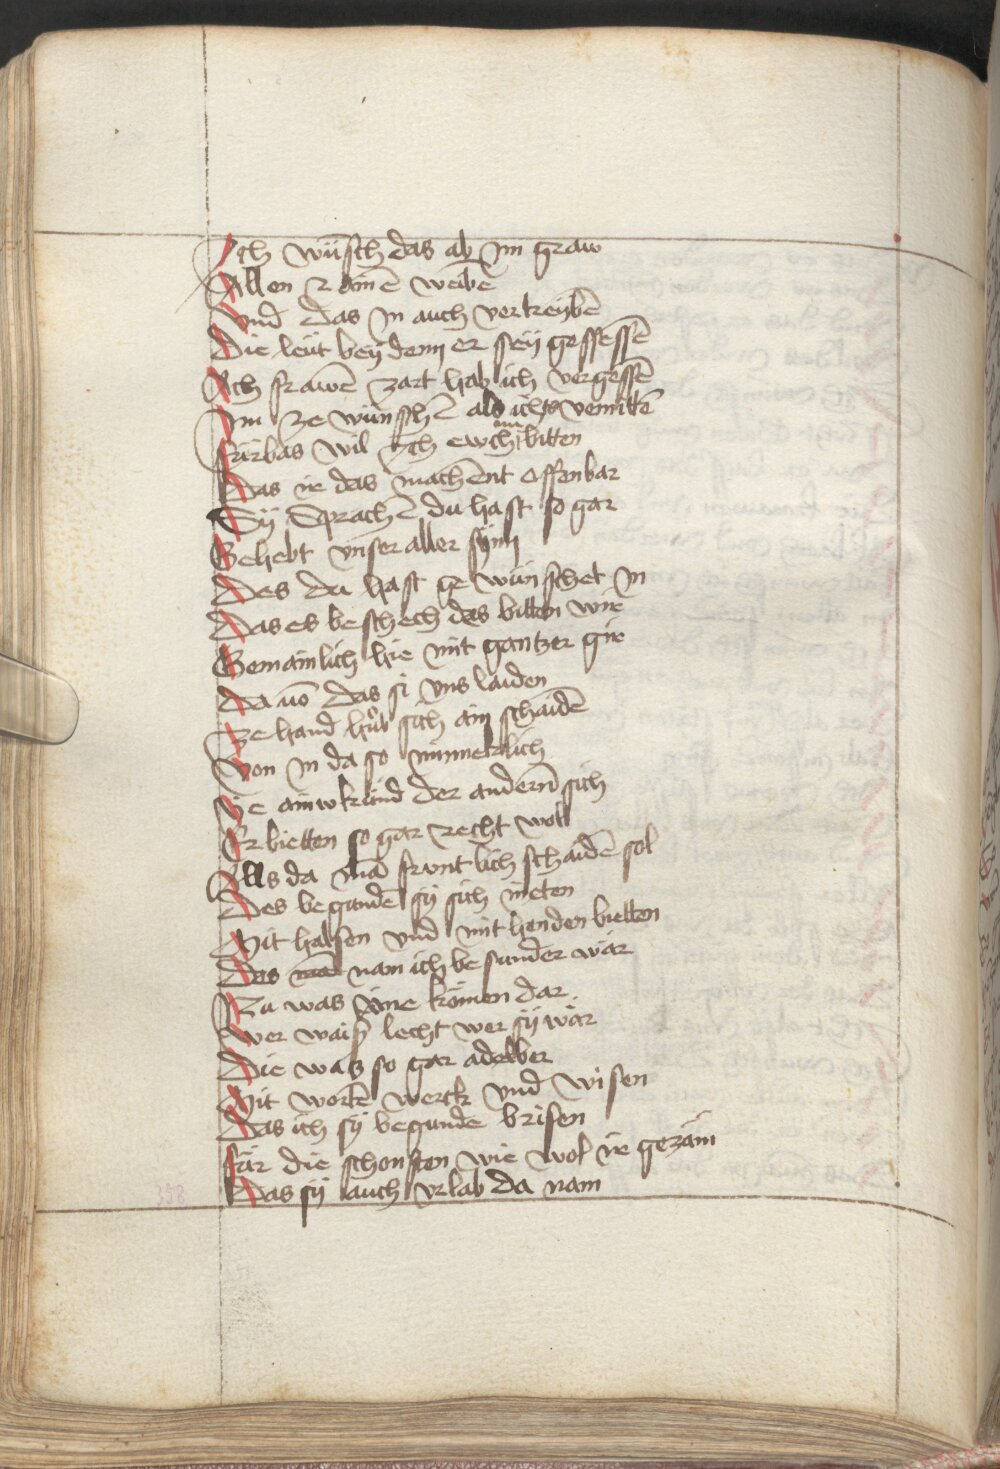 Ich wünsch das ab im graw
Allen rainē weibē
Vnd das in auch vertreybē
Die leüt bey denn er sey gessessē
Ach frawē zart hab ich vergessē
Im ze wünschē als ichts vermittē
Fürbas wil ich ewch aine bitten
Das ir das machent offenbar
Sy sprachē du hast so gar
Gehebt vnser aller synn
Des du hast gewünschet in
Das es beschech des bitten wir
Gemainlich hie mit gantzer gir
Da uō das si vns laiden
Ze hand hůb sich ain schaidē
Von in da so minneklich
Ye ainw kund der andern sich
Erbietten so gar recht wol
Alls da mā fruntlich schaidē sol
Des begundē sy sich nieten
Mit halsen vnd mit henden bietten
Des nam ich besunder war
Zu was aine komen dar
Wer waiß lecht wer sy war
Die was so gar adelber
Mit wortē werck vnd wisen
Das ich sy begunde brisen
Für die schonsten wie wol ir gezäm
Das sy auch vrlab da nam